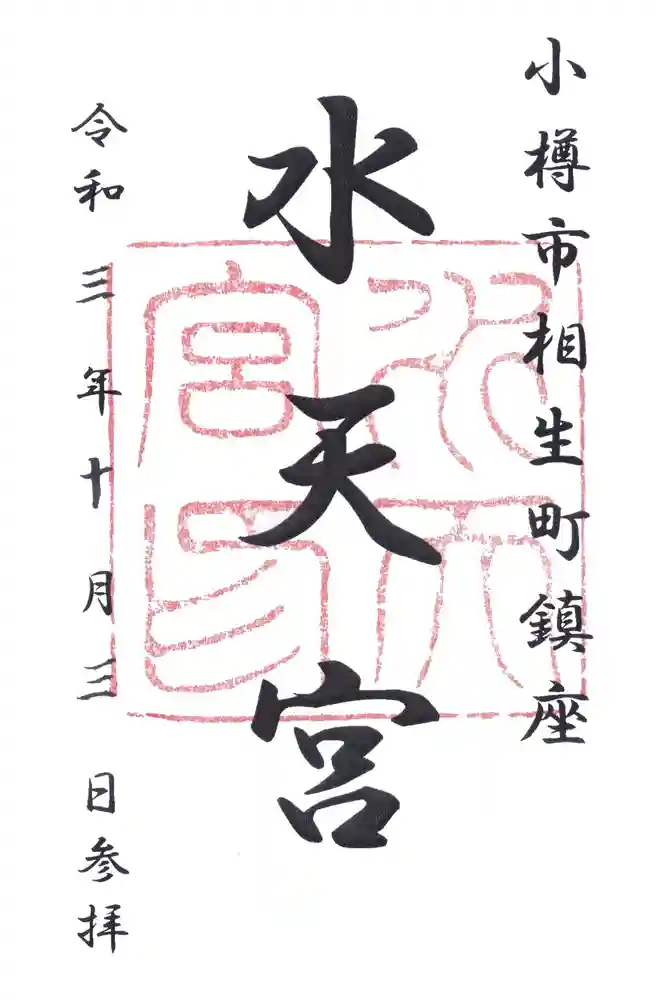 小樽市相生町鎮座
水天宮
令和三年十月三日参拝
水天
宮印